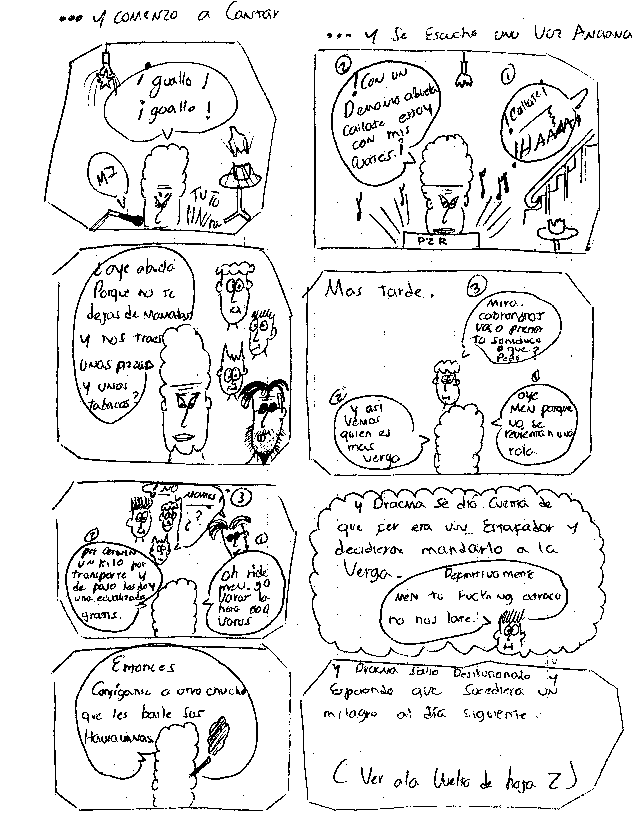 ... y comenzo a Cantar
¡guallo!
¡guallo!
MZ
TU TU
... y Se Escucho una Voz Anciana
②
¡Con un
Demonio abuela
callate estoy
con mis
①
¡Callate!
¡HAAAA!
PZR
¿oye abuelo
Porque no te
dejas de Mamadas
y nos traes
unas pizzas
y unos
tabacos?
Mas tarde.
③
Mira
vas a prender
tu
o que?
Pedo
②
y asi
Vemos
quien es
mas
verga
①
oye
Men porque
no se
revientan una
rola.
¡NO
MAMES!
¿?
③
②
un kilo por
transporte y
de paso les doy
una ecualizada
gratis.
①
oh
men. ya
la
hora
varos
y Dracma Se dio Cuenta de
que ser era un Estafador y
decidieron mandarlo a la
Verga.
Definitivamente
Men tu Fucking atraco
no nos late!
Entonces
Consiganse a otro chucho
que les baile sus
y Dracma salio Desilusionado y
Esperando que Sucediera un
milagro al dia siguiente.
(Ver a la Vuelta de hoja 2)